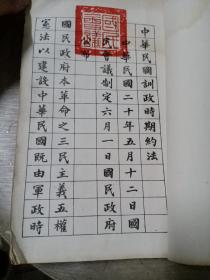 中華民國訓政時期約法
中華民國二十年五月十二日國
民會議制定六月一日國民政府
公布
國民政府本革命之三民主義五權
憲法以建設中華民國既由軍政時